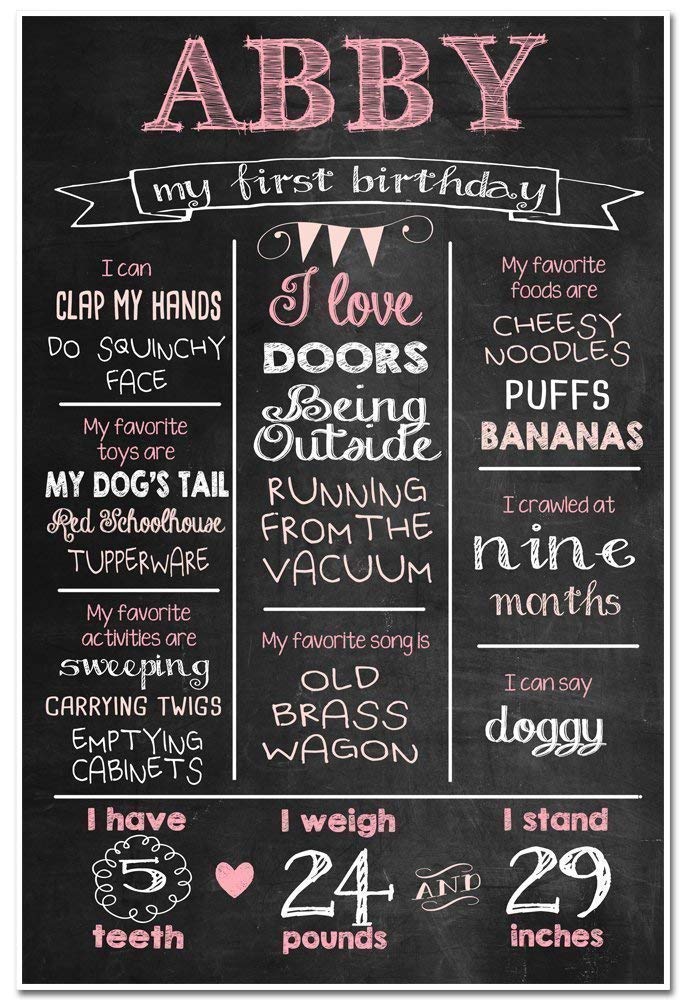 ABBY
my first birthday
I can
CLAP MY HANDS
DO SQUINCHY
FACE
My favorite
toys are
MY DOG'S TAIL
Red Schoolhouse
TUPPERWARE
My favorite
activities are
sweeping
CARRYING TWIGS
EMPTYING
CABINETS
I love
DOORS
Being
Outside
RUNNING
FROM THE
VACUUM
My favorite song is
OLD
BRASS
WAGON
My favorite
foods are
CHEESY
NOODLES
PUFFS
BANANAS
I crawled at
nine
months
I can say
doggy
I have
5
teeth
I weigh
24
pounds
AND
I stand
29
inches